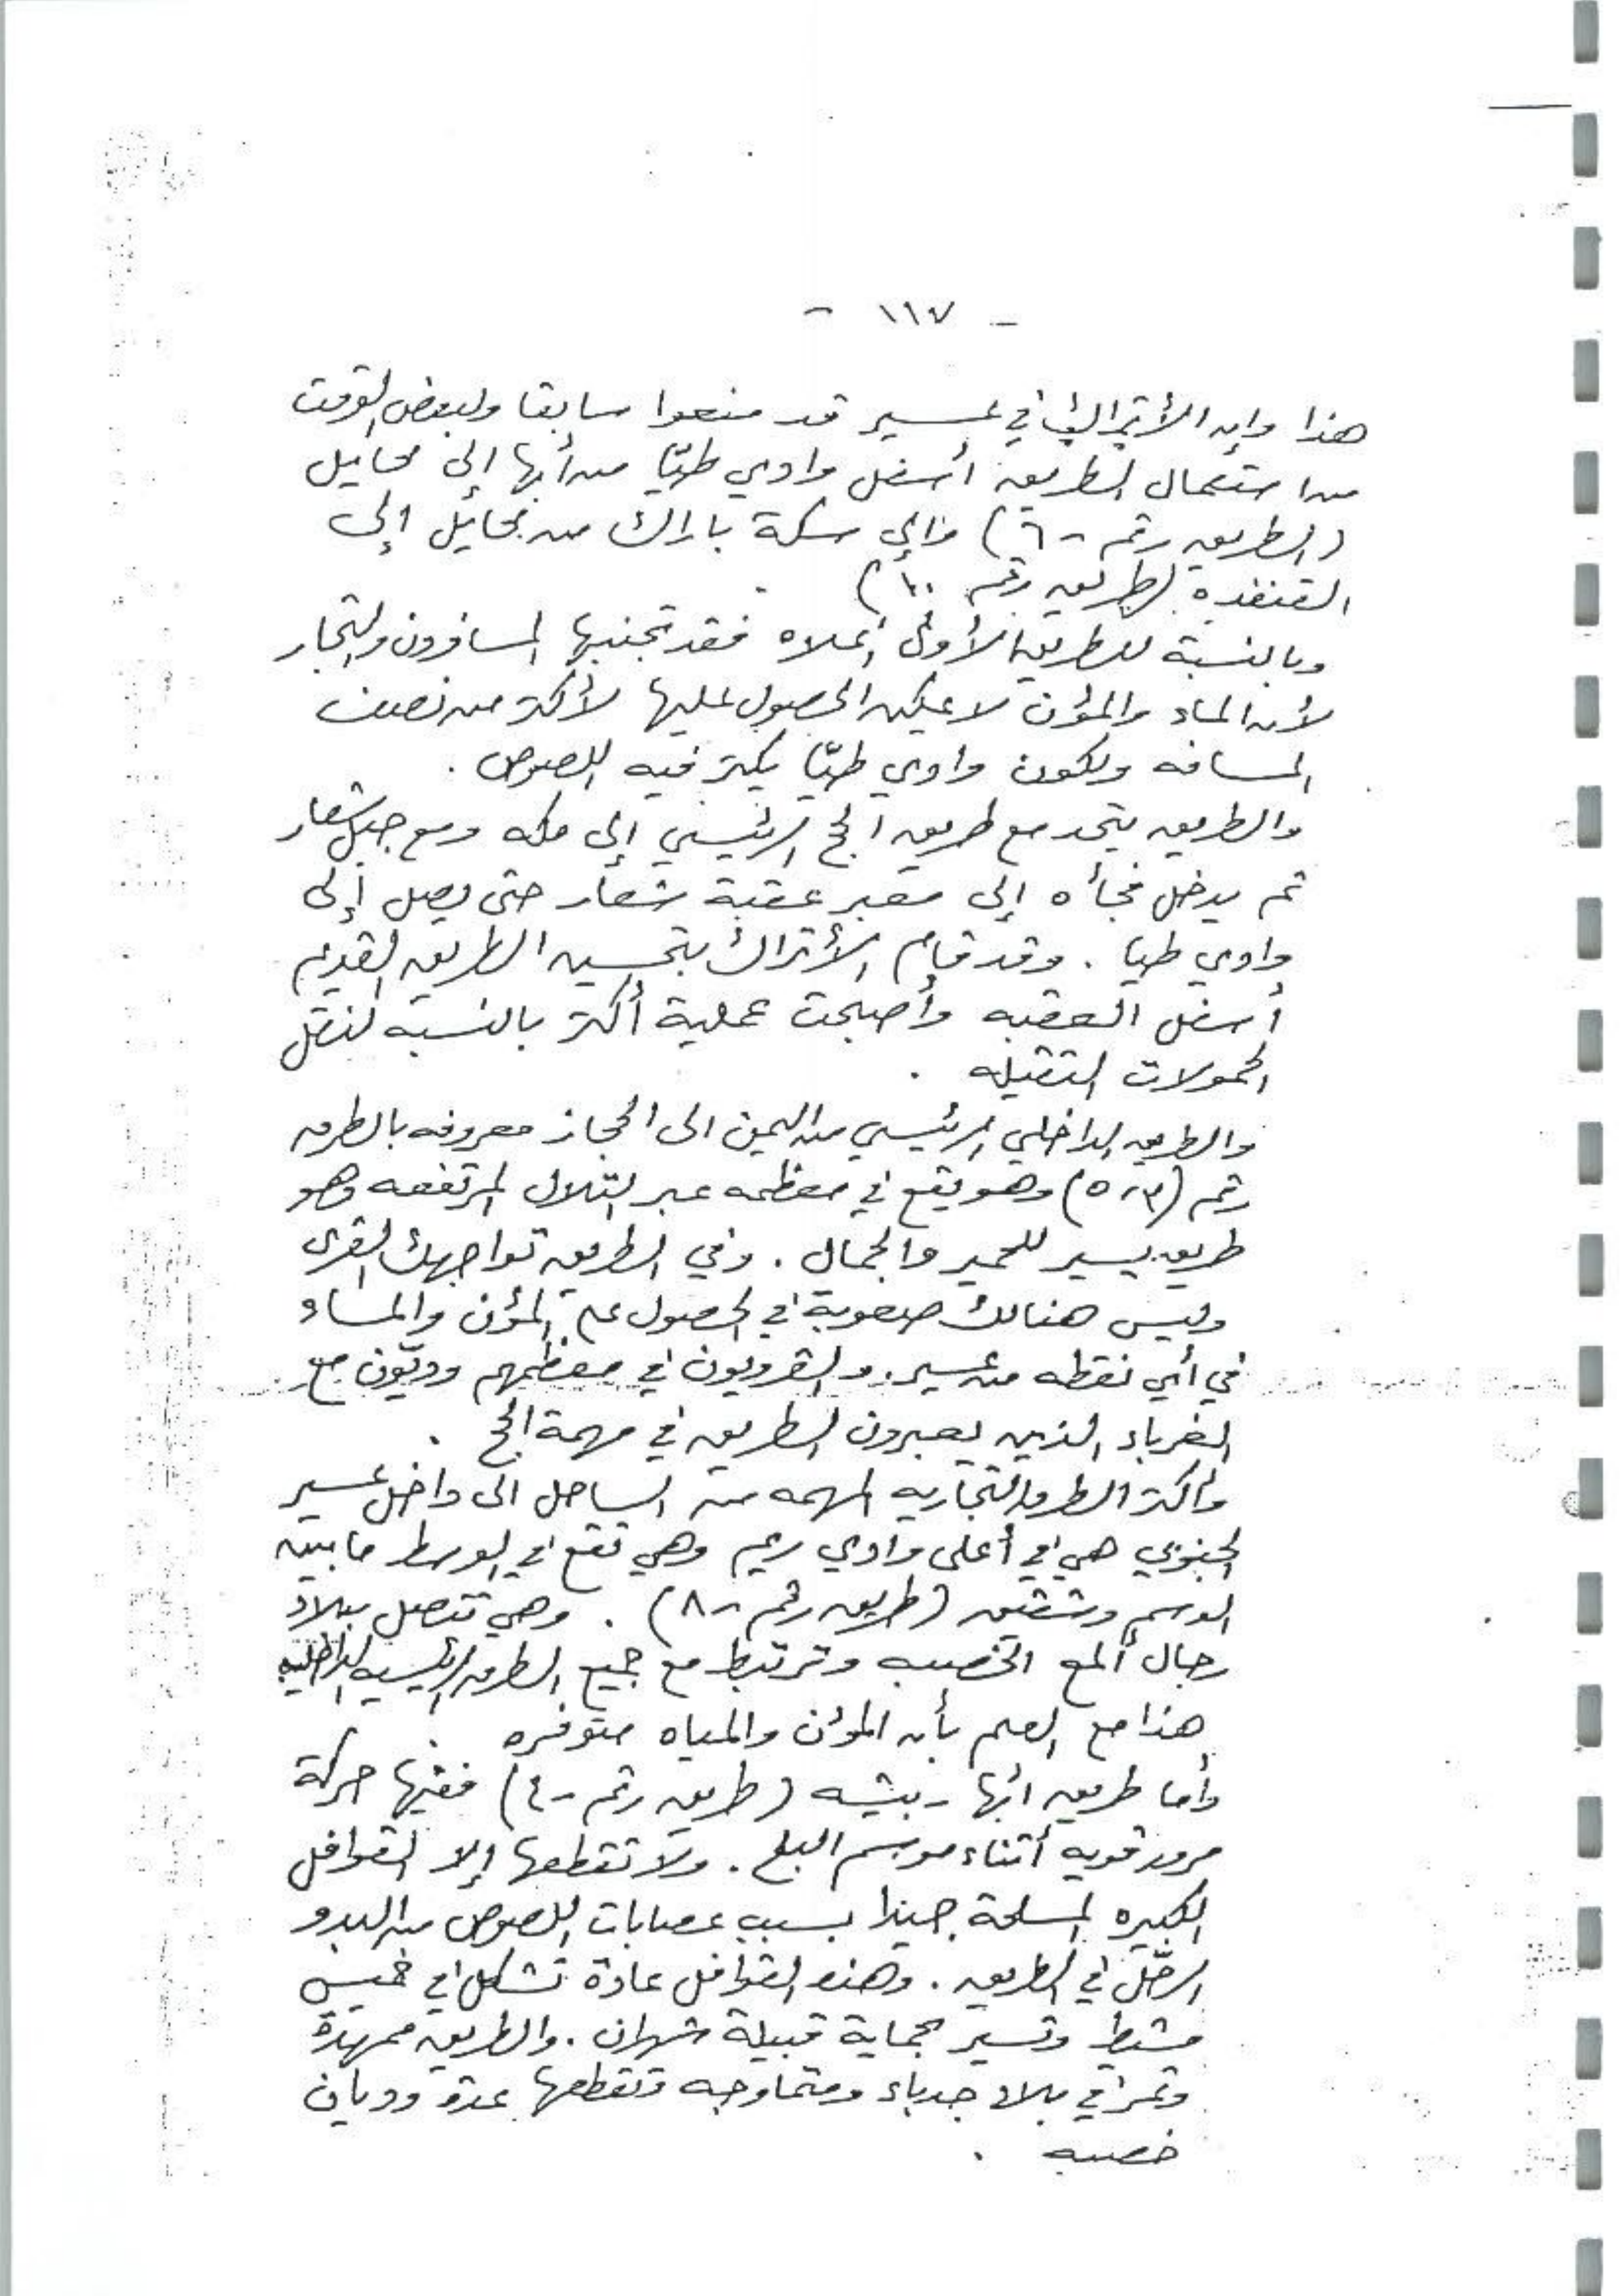 - ١١٧ -
هذا وإن الأتراك في عسير قد منعوا سابقا ولبعض الوقت
من استعمال الطريق أسفل وادي طيّا من أبها إلى محايل
(الطريق رقم - ٦) وإلى سكة باراك من محايل إلى
القنفذه (طريق رقم ١٠)
وبالنسبة للطريق الأولى أعلاه فقد تجنبها المسافرون والتجار
لأن الماء والمؤن لا يمكن الحصول عليها لأكثر من نصف
المسافه ولكون وادي طيّا يكثر فيه اللصوص .
والطريق يتحد مع طريق الحج الرئيسي إلى مكه ومع جبل شعار
ثم يدخل فجأه إلى معبر عقبة شعار حتى يصل إلى
وادي طيا . وقد قام الأتراك بتحسين الطريق القديم
أسفل العقبه وأصبحت عملية أكثر بالنسبه لنقل
الحمولات الثقيله .
والطريق الداخلي الرئيسي من اليمن الى الحجاز معروفه بالطرق
رقم (٣، ٥) وهو يقع في معظمه عبر التلال المرتفعه وهو
طريق يسير للحمير والجمال . وفي الطريق تواجهك القرى
وليس هنالك صعوبة في الحصول على المؤن والماء
في أي نقطه من عسير. والقرويون في معظمهم وديّون مع
الغرباء الذين يعبرون الطريق في مهمة الحج .
وأكثر الطرق التجاريه المهمه من الساحل الى داخل عسير
الجنوبي هي في أعلى وادي ريم وهي تقع في الوسط ما بين
الوسم وشقيق (طريق رقم - ٨) . وهي تتصل ببلاد
رجال ألمع الخصبه وترتبط مع جميع الطرق الرئيسيه الداخليه
هذا مع العلم بأن المؤن والمياه متوفره .
وأما طريق أبها - بيشه (طريق رقم - ٤) ففيها حركة
مرور قويه أثناء موسم البلح . ولا تقطعها إلا القوافل
الكبيره المسلحة جيدا بسبب عصابات اللصوص من البدو
الرحّل في الطريق . وهذه القوافل عادة تشكل في خميس
مشيط وتسير بحماية قبيلة شهران . والطريق ممهدة
وتمر في بلاد جدباء ومتماوجه وتقطعها عدة وديان
خصبه .